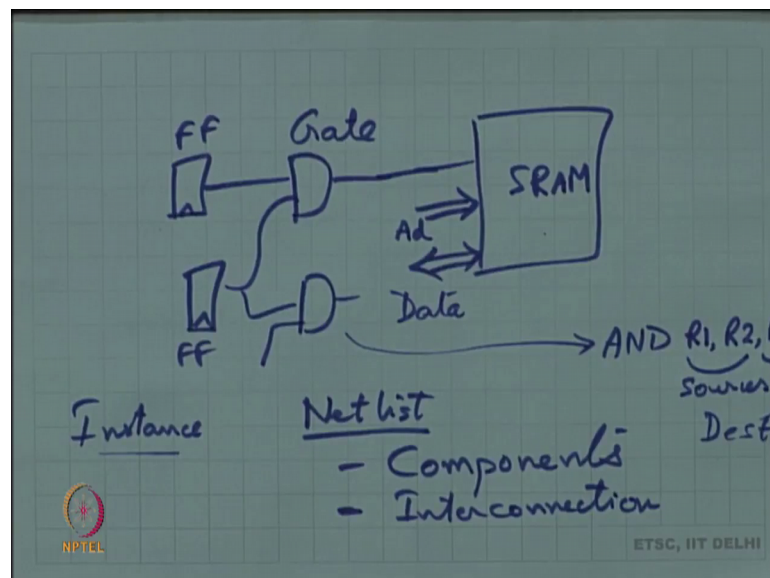 FF Gate
SRAM
Ad
FF Data
AND R1, R2,
Sources
Instance Netlist
Dest
- Components
- Interconnection
NPTEL
ETSC, IIT DELHI